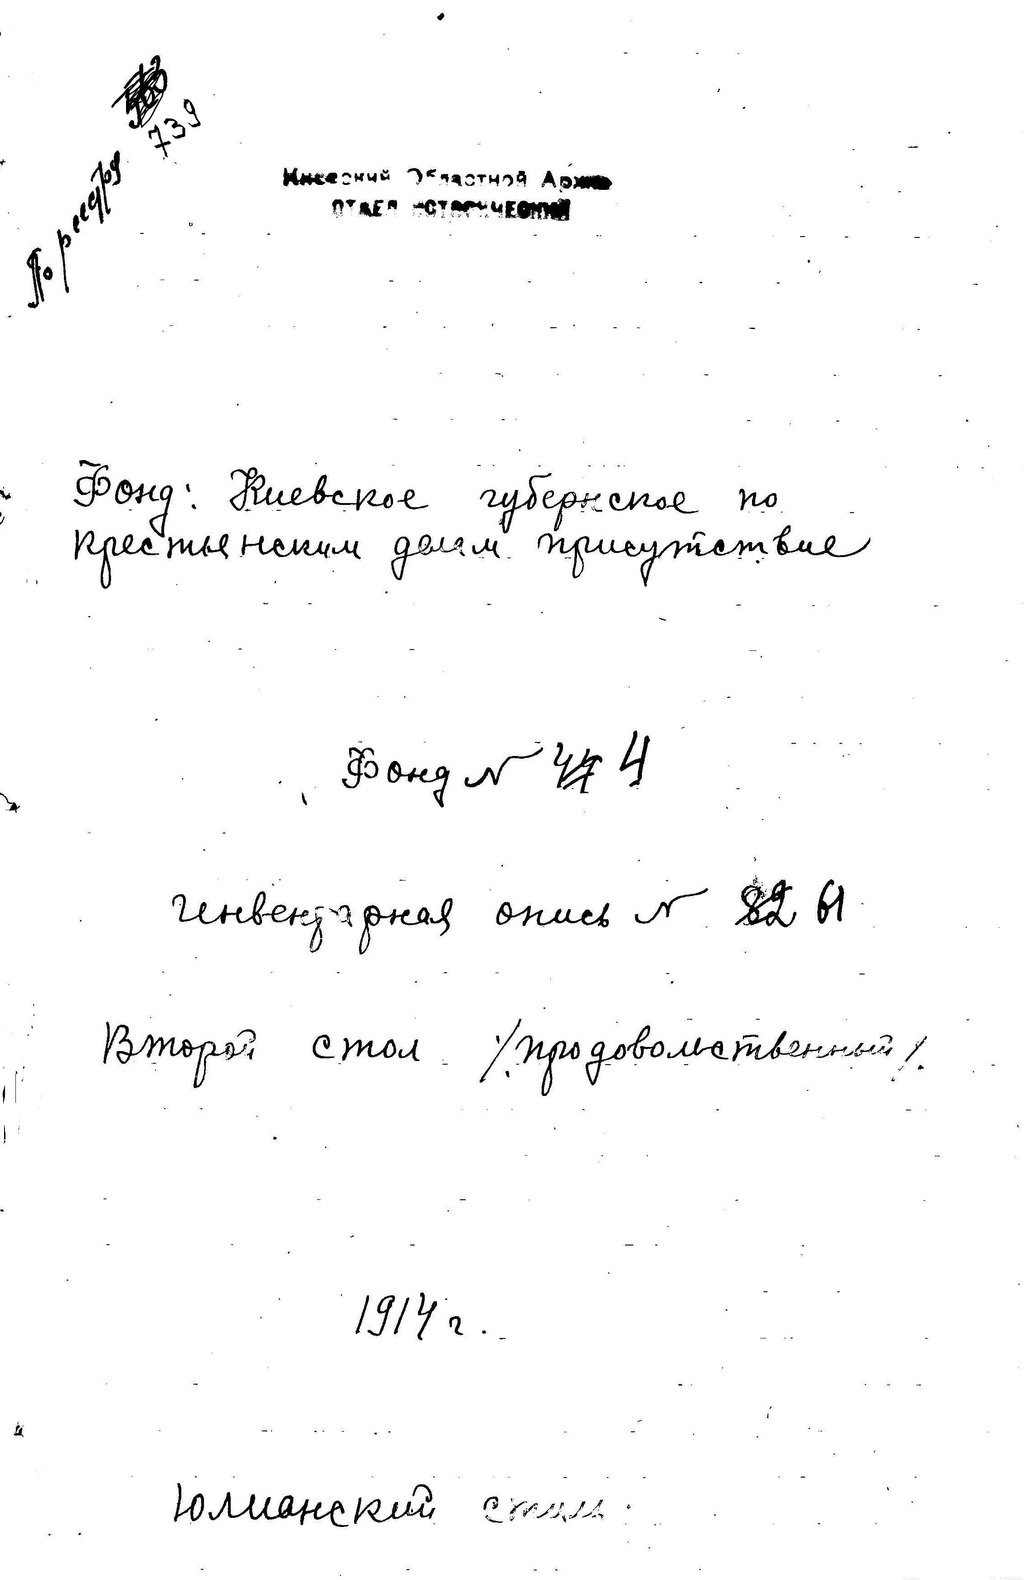 По реестру 739
Киевский Областной Архив
ОТДЕЛ ИСТОРИЧЕСКИЙ
Фонд: Киевское губернское по
крестьянским делам присутствие
Фонд N 4
Инвентарная опись N 61
Второй стол /продовольственный/.
1914 г.
Юлианский стиль.